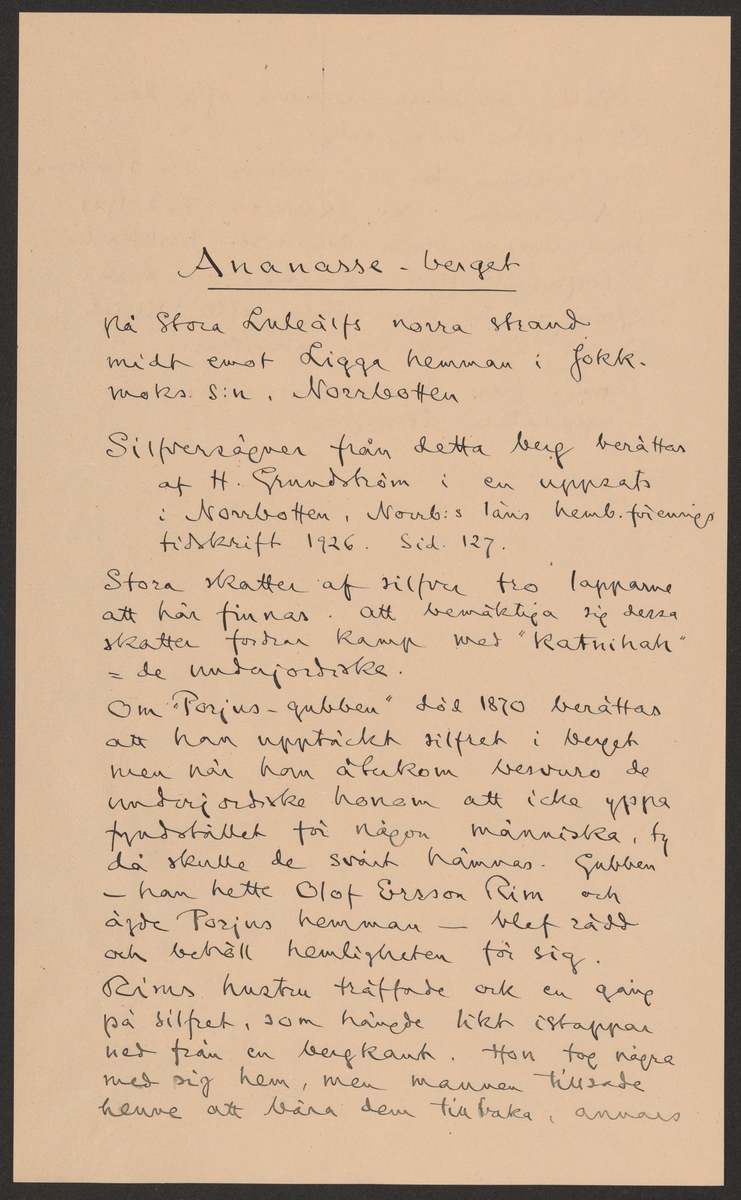 Ananasse-berget
på Stora Luleälfs norra strand
midt emot Ligga hemman i Jokk-
moks s:n, Norrbotten
Silfversägner från detta berg berättas
af H. Grundström i en uppsats
i Norrbotten, Norrb:s läns hemb.förenings
tidskrift 1926. Sid. 127.
Stora skatter af silfver tro lapparne
att här finnas. Att bemäktiga sig dessa
skatter fordrar kamp med "Katnihah"
= de underjordiske.
Om "Porjus-gubben" död 1870 berättas
att han upptäckt silfret i berget
men när han återkom besvuro de
underjordiske honom att icke yppa
fyndstället för någon människa, ty
då skulle de svårt hämnas. Gubben
— han hette Olof Ersson Rim och
ägde Porjus hemman — blef rädd
och behöll hemligheten för sig.
Rims hustru träffade ock en gång
på silfret, som hängde likt istappar
ned från en bergkant. Hon tog några
med sig hem, men mannen tillsade
henne att bära dem tillbaka, annars